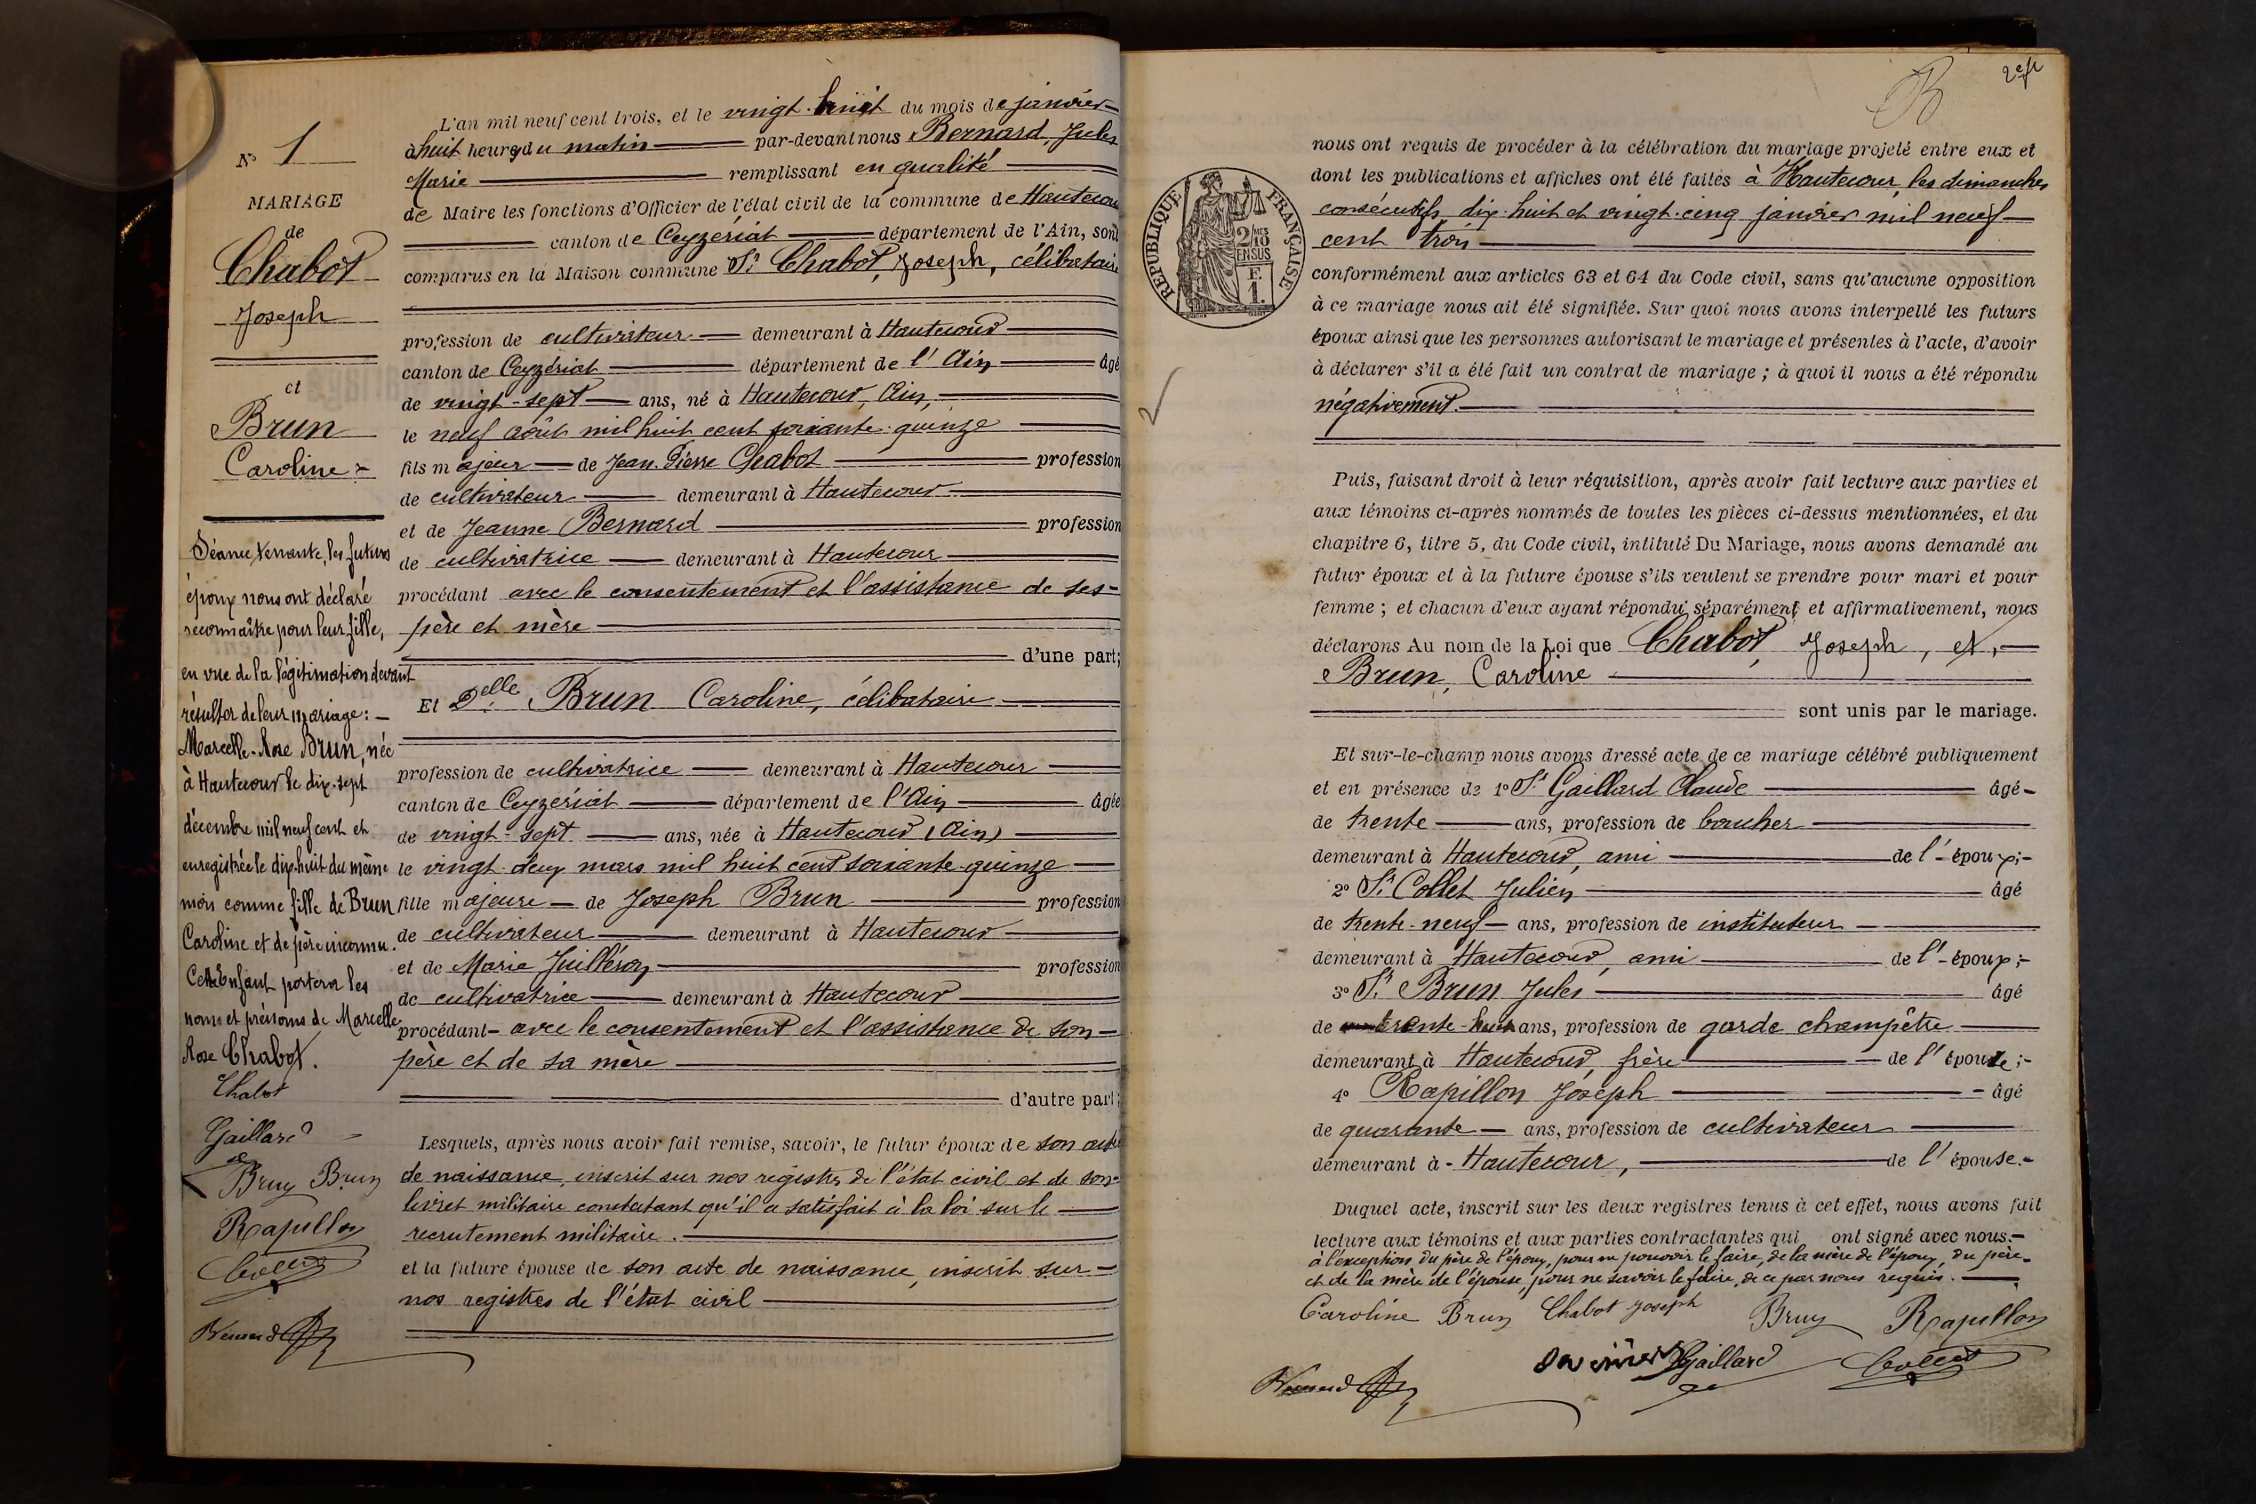 N° 1
MARIAGE
de
Chabot
Joseph
et
Brun
Caroline
Séance tenante, les futurs
époux nous ont déclaré
reconnaître pour leur fille,
en vue de la légitimation devant
résulter de leur mariage :
Marcelle-Rose Brun, née
à Hautecour le dix-sept
décembre mil neuf cent et
enregistrée le dix-huit du même
mois comme fille de Brun
Caroline et de père inconnu.
Cette Enfant portera les
noms et prénoms de Marcelle
Rose Chabot.
Chabot
Gaillard
Brun Brun
Rapillon
Collet
Bernard
L'an mil neuf cent trois, et le vingt-huit du mois de janvier
à huit heures du matin par-devant nous Bernard, Jules
Marie remplissant en qualité
de Maire les fonctions d'Officier de l'état civil de la commune de Hautecour
canton de Ceyzériat département de l'Ain, sont
comparus en la Maison commune Sr. Chabot, Joseph, célibataire
profession de cultivateur demeurant à Hautecour
canton de Ceyzériat département de l'Ain âgé
de vingt-sept ans, né à Hautecour, Ain,
le neuf août mil huit cent soixante-quinze
fils majeur de Jean-Pierre Chabot profession
de cultivateur demeurant à Hautecour
et de Jeanne Bernard profession
de cultivatrice demeurant à Hautecour
procédant avec le consentement et l'assistance de ses
père et mère
d'une part;
Et Delle. Brun Caroline, célibataire
profession de cultivatrice demeurant à Hautecour
canton de Ceyzériat département de l'Ain âgée
de vingt-sept ans, née à Hautecour (Ain)
le vingt-deux mars mil huit cent soixante-quinze
fille majeure de Joseph Brun profession
de cultivateur demeurant à Hautecour
et de Marie Juilléron profession
de cultivatrice demeurant à Hautecour
procédant avec le consentement et l'assistance de son
père et de sa mère
d'autre part;
Lesquels, après nous avoir fait remise, savoir, le futur époux de son acte
de naissance, inscrit sur nos registres de l'état civil et de son
livret militaire constatant qu'il a satisfait à la loi sur le
recrutement militaire.
et la future épouse de son acte de naissance, inscrit sur
nos registres de l'état civil
RÉPUBLIQUE FRANÇAISE
2/10
EN SUS
F.
1.
nous ont requis de procéder à la célébration du mariage projeté entre eux et
dont les publications et affiches ont été faites à Hautecour, les dimanches
consécutifs, dix-huit et vingt-cinq janvier mil neuf
cent trois
conformément aux articles 63 et 64 du Code civil, sans qu'aucune opposition
à ce mariage nous ait été signifiée. Sur quoi nous avons interpellé les futurs
époux ainsi que les personnes autorisant le mariage et présentes à l'acte, d'avoir
à déclarer s'il a été fait un contrat de mariage ; à quoi il nous a été répondu
négativement.
Puis, faisant droit à leur réquisition, après avoir fait lecture aux parties et
aux témoins ci-après nommés de toutes les pièces ci-dessus mentionnées, et du
chapitre 6, titre 5, du Code civil, intitulé Du Mariage, nous avons demandé au
futur époux et à la future épouse s'ils veulent se prendre pour mari et pour
femme ; et chacun d'eux ayant répondu séparément et affirmativement, nous
déclarons Au nom de la Loi que Chabot, Joseph, et,
Brun, Caroline
sont unis par le mariage.
Et sur-le-champ nous avons dressé acte de ce mariage célébré publiquement
et en présence de 1° Sr. Gaillard Claude âgé
de trente ans, profession de boucher
demeurant à Hautecour, ami de l'époux;
2° Sr. Collet Julien âgé
de trente-neuf ans, profession de instituteur
demeurant à Hautecour, ami de l'époux;
3° Sr. Brun Jules âgé
de trente-huit ans, profession de garde champêtre
demeurant à Hautecour, frère de l'épouse;
4° Rapillon Joseph âgé
de quarante ans, profession de cultivateur
demeurant à Hautecour, de l'épouse.
Duquel acte, inscrit sur les deux registres tenus à cet effet, nous avons fait
lecture aux témoins et aux parties contractantes qui ont signé avec nous.
à l'exception du père de l'époux, pour ne pouvoir le faire, de la mère de l'époux, du père
et de la mère de l'épouse, pour ne savoir le faire, de ce par nous requis.
Caroline Brun Chabot Joseph Brun Rapillon
Gaillard Collet
Bernard